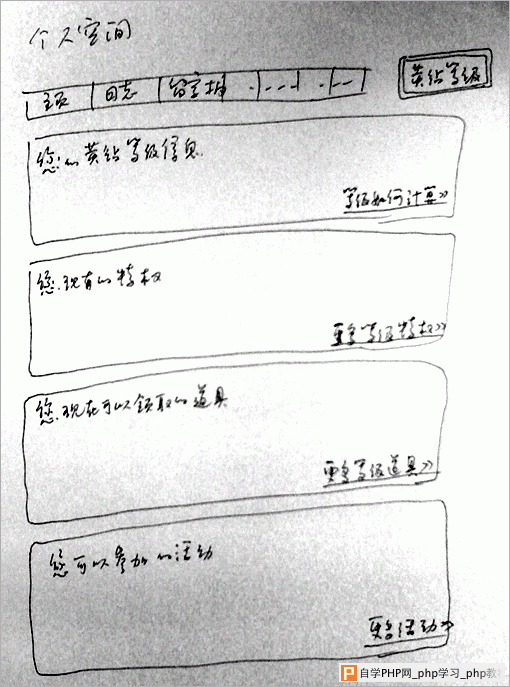 个人空间
主页 日志 留言板 ---- ---
黄钻等级
您的黄钻等级信息
等级如何计算>>
您现有的特权
更多等级特权>>
您现在可以领取的道具
更多等级道具>>
您可以参加的活动
更多活动>>
自学PHP网_php学习_php教